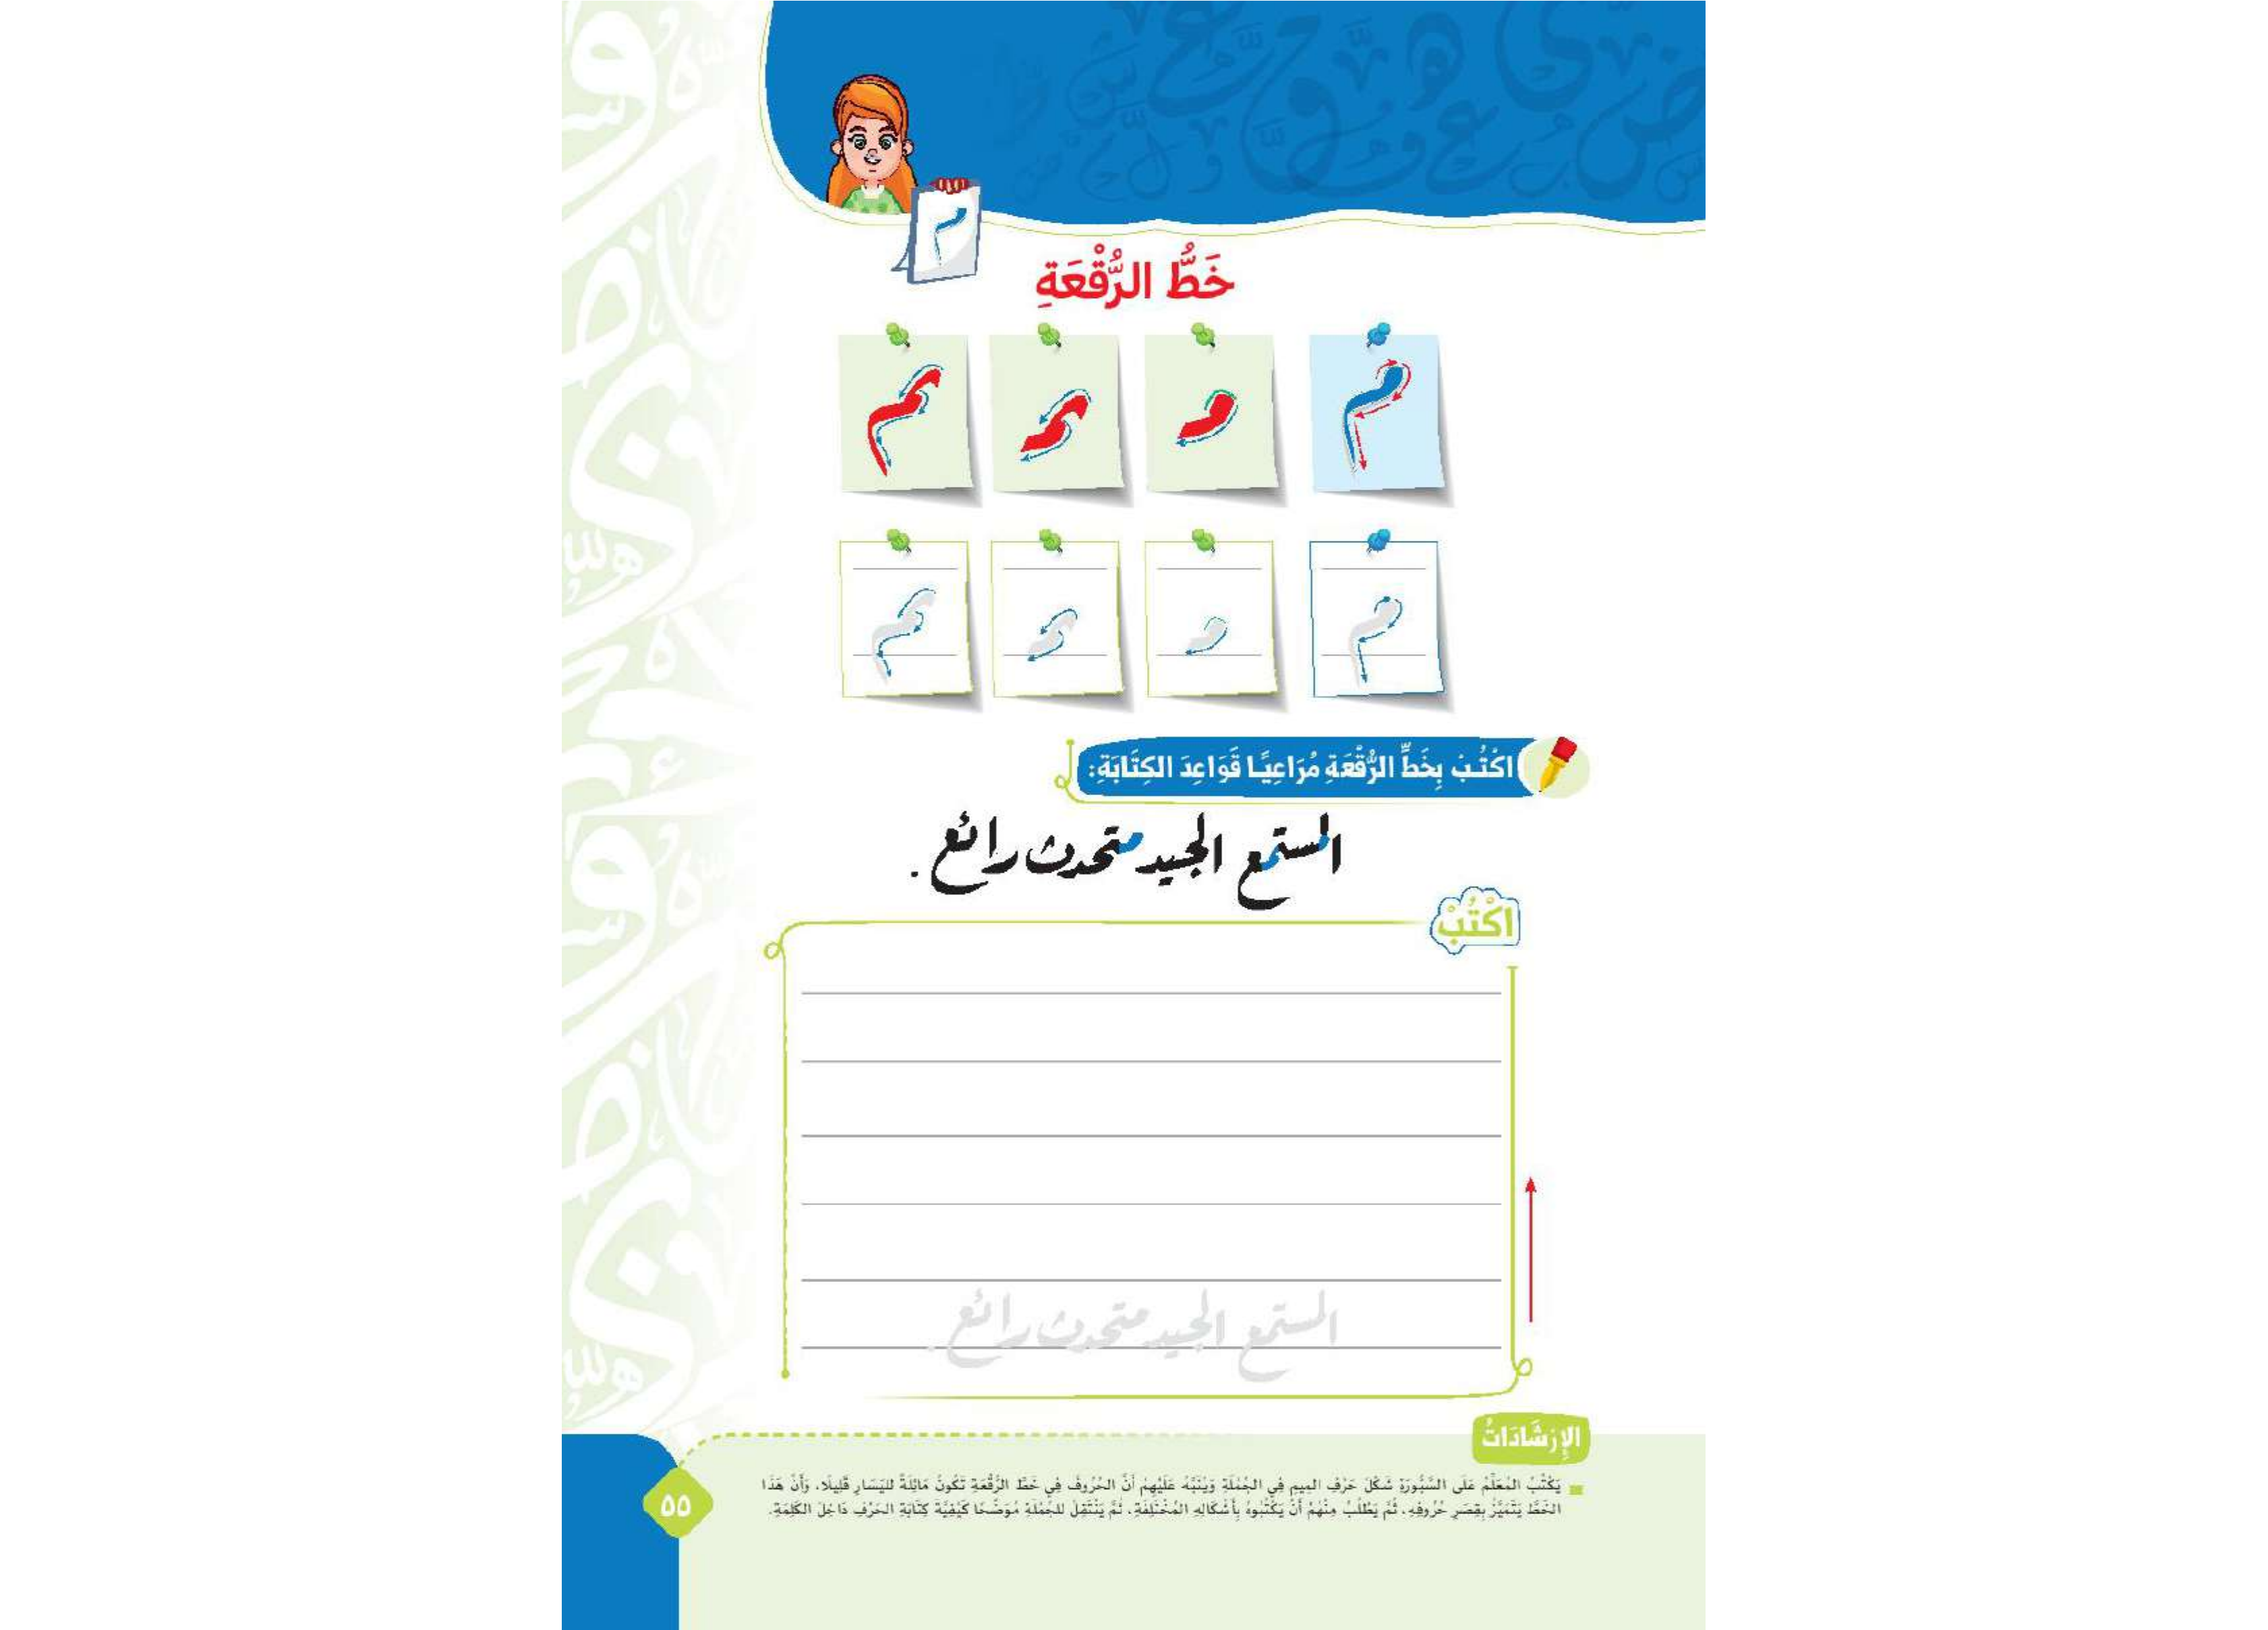 م
خَطُّ الرُّقْعَةِ
م مـ ـمـ ـم
م مـ ـمـ ـم
اكْتُبْ بِخَطِّ الرُّقْعَةِ مُرَاعِيًا قَوَاعِدَ الكِتَابَةِ:
المستمع الجيد متحدث رائع .
اكْتُبْ
المستمع الجيد متحدث رائع .
الإِرْشَادَاتُ
يَكْتُبُ المُعَلِّمُ عَلَى السَّبُّورَةِ شَكْلَ حَرْفِ المِيمِ فِي الجُمْلَةِ وَيُنَبِّهُ عَلَيْهِمْ أَنَّ الحُرُوفَ فِي خَطِّ الرُّقْعَةِ تَكُونُ مَائِلَةً للْيَسَارِ قَلِيلًا، وَأَنَّ هَذَا
الخَطَّ يَتَمَيَّزُ بِقِصَرِ حُرُوفِهِ، ثُمَّ يَطْلُبُ مِنْهُمْ أَنْ يَكْتُبُوهُ بِأَشْكَالِهِ المُخْتَلِفَةِ، ثُمَّ يَنْتَقِلُ للجُمْلَةِ مُوَضِّحًا كَيْفِيَّةَ كِتَابَةِ الحَرْفِ دَاخِلَ الكَلِمَةِ.
٥٥